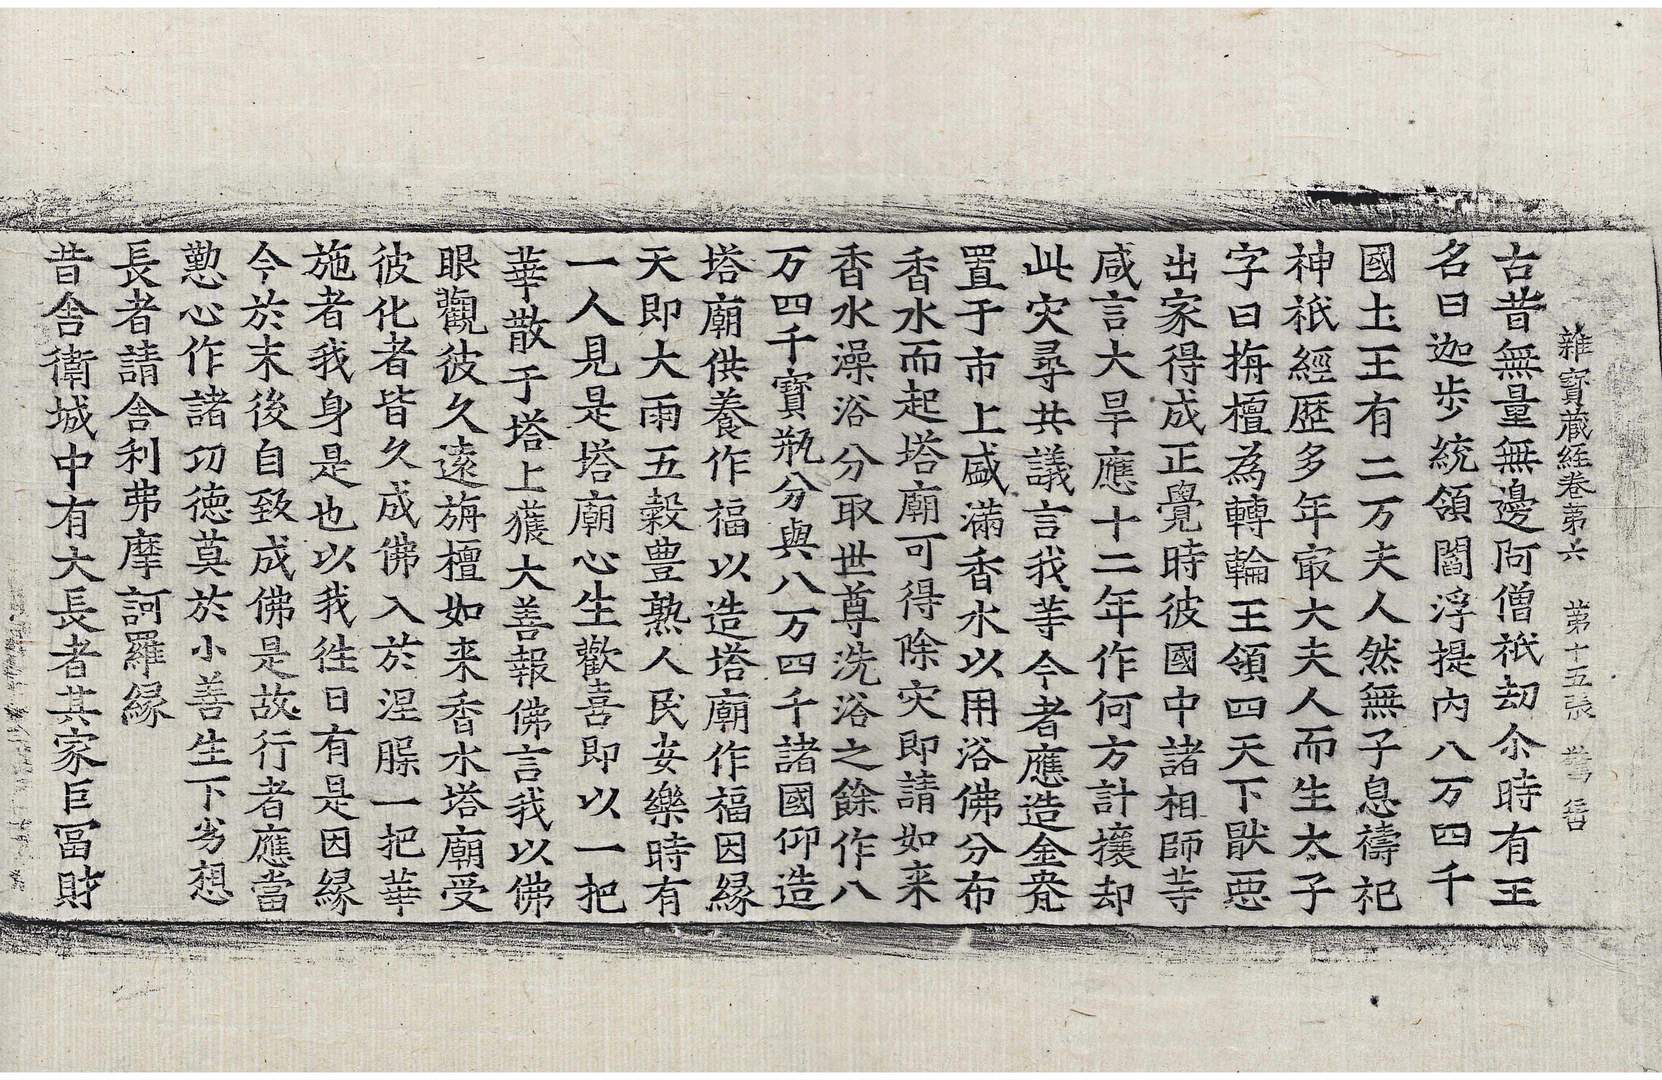 雜寶藏經卷第六　第十五張
古昔無量無邊阿僧祇劫尒時有王
名曰迦步統領閻浮提内八万四千
國土王有二万夫人然無子息禱祀
神祇經歷多年冣大夫人而生太子
字曰栴檀為轉輪王領四天下猒惡
出家得成正覺時彼國中諸相師等
咸言大旱應十二年作何方計攘却
此灾尋共議言我等今者應造金甖
置于市上盛滿香水以用浴佛分布
香水而起塔廟可得除灾即請如来
香水澡浴分取世尊洗浴之餘作八
万四千寶瓶分與八万四千諸國仰造
塔廟供養作福以造塔廟作福因緣
天即大雨五穀豊熟人民安樂時有
一人見是塔廟心生歡喜即以一把
華散于塔上獲大善報佛言我以佛
眼觀彼久遠旃檀如来香水塔廟受
彼化者皆久成佛入於涅槃一把華
施者我身是也以我往日有是因緣
今於末後自致成佛是故行者應當
懃心作諸功德莫於小善生下劣想
長者請舍利弗摩訶羅緣
昔舍衛城中有大長者其家巨冨財